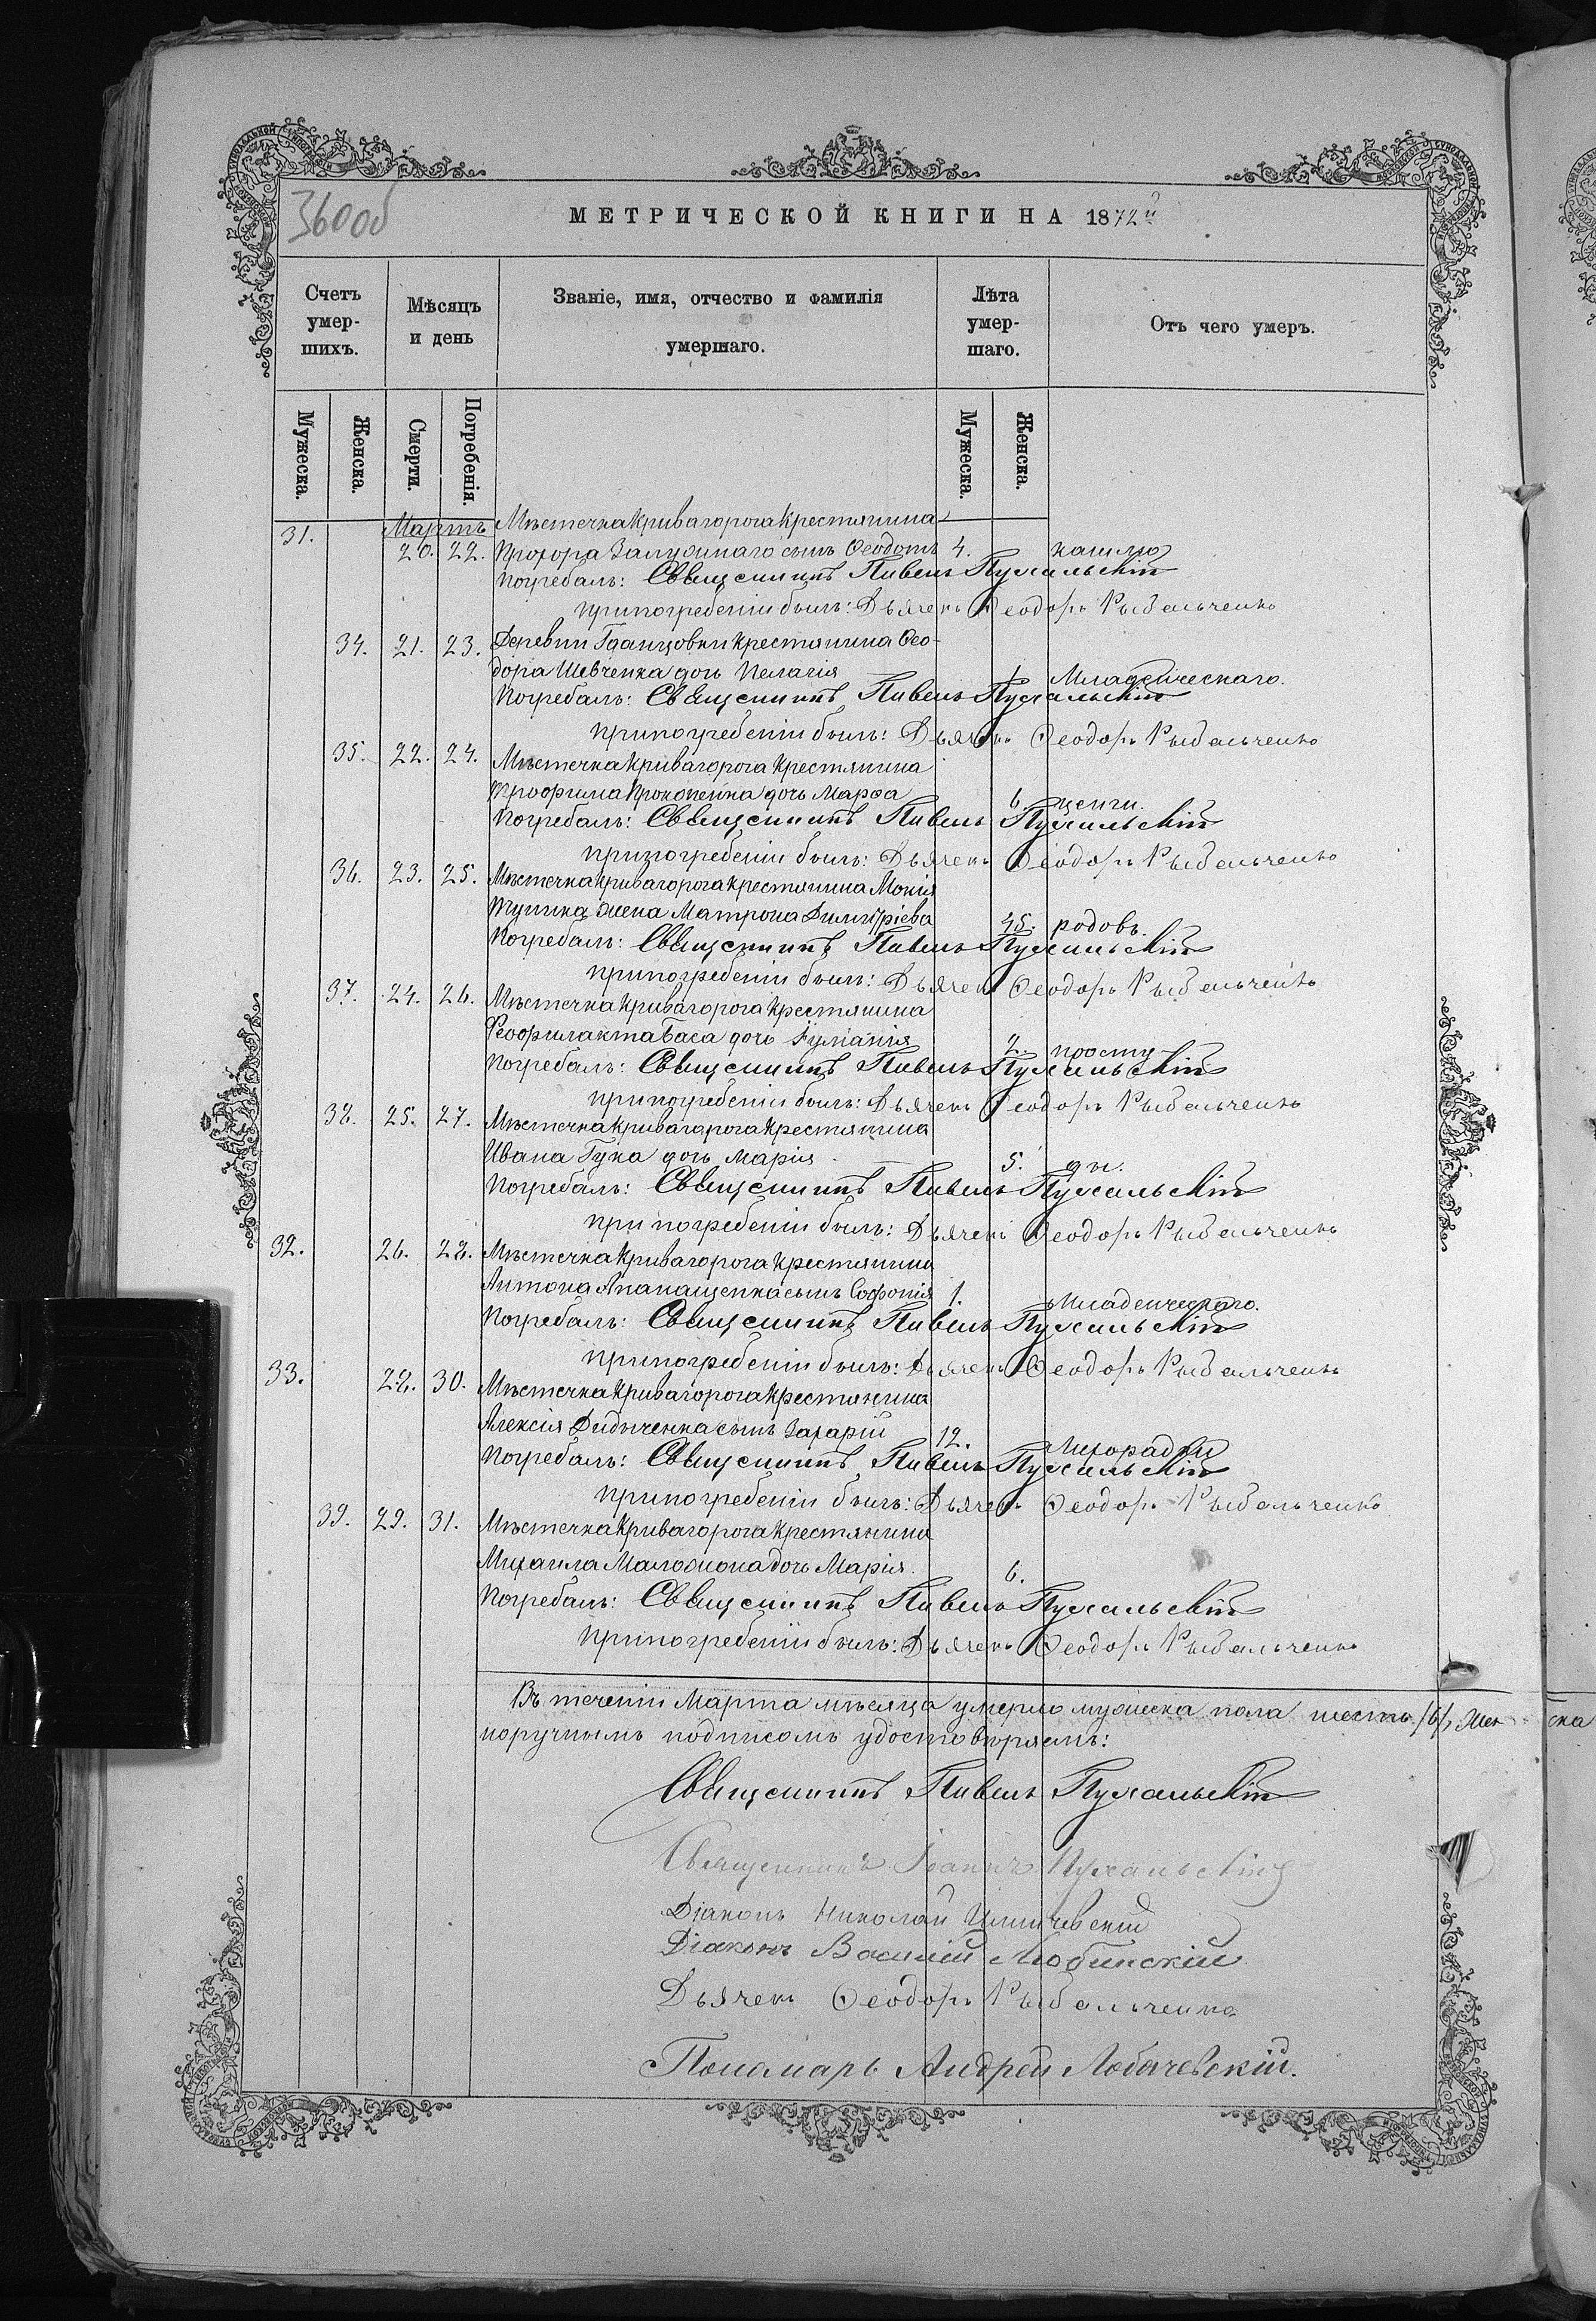 360об
МЕТРИЧЕСКОЙ КНИГИ НА 1872й
Счетъ умер-шихъ.
Мѣсяцъ и день
Званіе, имя, отчество и фамилія умершаго.
Лѣта умер-шаго.
Отъ чего умеръ.
Мужеска. Женска. Смерти. Погребенія. Мужеска. Женска.
31. Мартъ Мѣстечка Кривагорога крестянина
20. 22. Прохора Залужнаго сынъ Феодотъ 4. кашлю
погребалъ: Священникъ Павелъ Пухальскій
при погребеніи былъ: Дьячекъ Феодоръ Рыбальченко
34. 21. 23. Деревни Гданцовки крестянина Фео-
дора Шевченка дочь Пелагія 1. Младенческаго.
Погребалъ: Священникъ Павелъ Пухальскій
при погребеніи былъ: Дьячекъ Феодоръ Рыбальченко
35. 22. 24. Мѣстечка Кривагорога крестянина
Трофима Прокопенка дочь Марфа 6. цынги.
Погребалъ: Священникъ Павелъ Пухальскій
при погребеніи былъ: Дьячекъ Феодоръ Рыбальченко
36. 23. 25. Мѣстечка Кривагорога крестянина Мокія
жена Матрона Димитріева 45. родовъ.
Погребалъ: Священникъ Павелъ Пухальскій
при погребеніи былъ: Дьячекъ Феодоръ Рыбальченко
37. 24. 26. Мѣстечка Кривагорога крестянина
Феофилакта Баса дочь Іуліанія 2. просту-
Погребалъ: Священникъ Павелъ Пухальскій
при погребеніи былъ: Дьячекъ Феодоръ Рыбальченко
38. 25. 27. Мѣстечка Кривагорога крестянина
Ивана Гука дочь Марія 5. ды.
Погребалъ: Священникъ Павелъ Пухальскій
при погребеніи былъ: Дьячекъ Феодоръ Рыбальченко
32. 26. 28. Мѣстечка Кривагорога крестянина
Антона Апанащенка сынъ Софонія 1. Младенческаго.
Погребалъ: Священникъ Павелъ Пухальскій
при погребеніи былъ: Дьячекъ Феодоръ Рыбальченко
33. 28. 30. Мѣстечка Кривагорога крестянина
Алексія Дидыченка сынъ Захарій 12. Лихорадки
Погребалъ: Священникъ Павелъ Пухальскій
при погребеніи былъ: Дьячекъ Феодоръ Рыбальченко
39. 29. 31. Мѣстечка Кривагорога крестянина
Михаила дочь Марія. 6.
Погребалъ: Священникъ Павелъ Пухальскій
при погребеніи былъ: Дьячекъ Феодоръ Рыбальченко
Въ теченіи Марта мѣсяца умерло мужеска пола шесть /6/, Жен ска
поручнымъ подписомъ удостовѣряемъ:
Священникъ Павелъ Пухальскій
Священникъ Іоаннъ Пухальскій
Діаконъ Николай
Діаконъ Василій Любинскій
Дьячекъ Феодоръ Рыбальченко
Пономарь Андрей Лобачевскій.